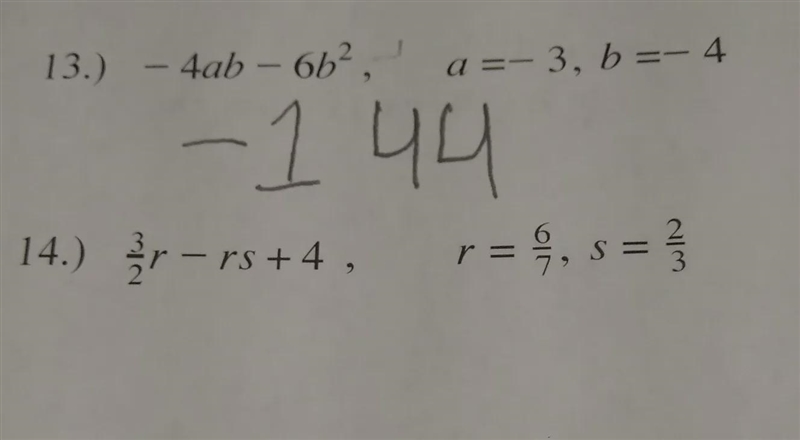 13.) − 4ab − 6b², a =− 3, b =− 4
−144
14.) 3/2 r − rs + 4 , r = 6/7, s = 2/3